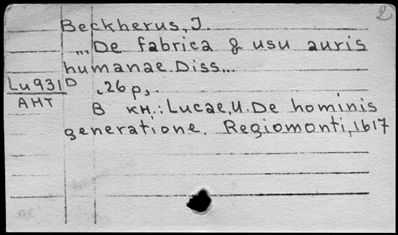 2
Beckherus, J.
...De fabrica & usu auris
humanae. Diss...
Lu931D
AMT
, 26p,.
В кн.: Lucae, U. De hominis
generatione. Regiomonti, 1617